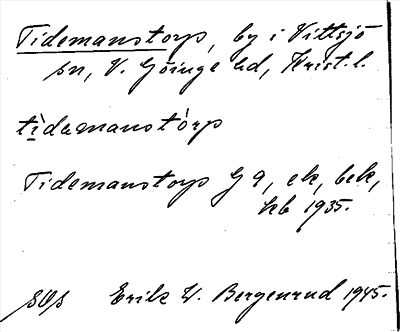 Tidemanstorp, by i Vittsjö
sn, V. Göinge hd, Krist. l.
tìdəmanstórp
Tidemanstorp G 9, ek, bek,
kb 1935.
Erik W. Bergenrud 1945.